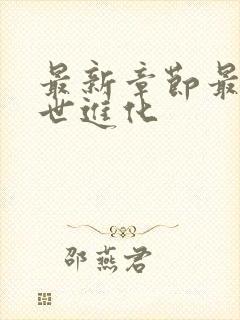 最新章節最
世進化
邵燕君